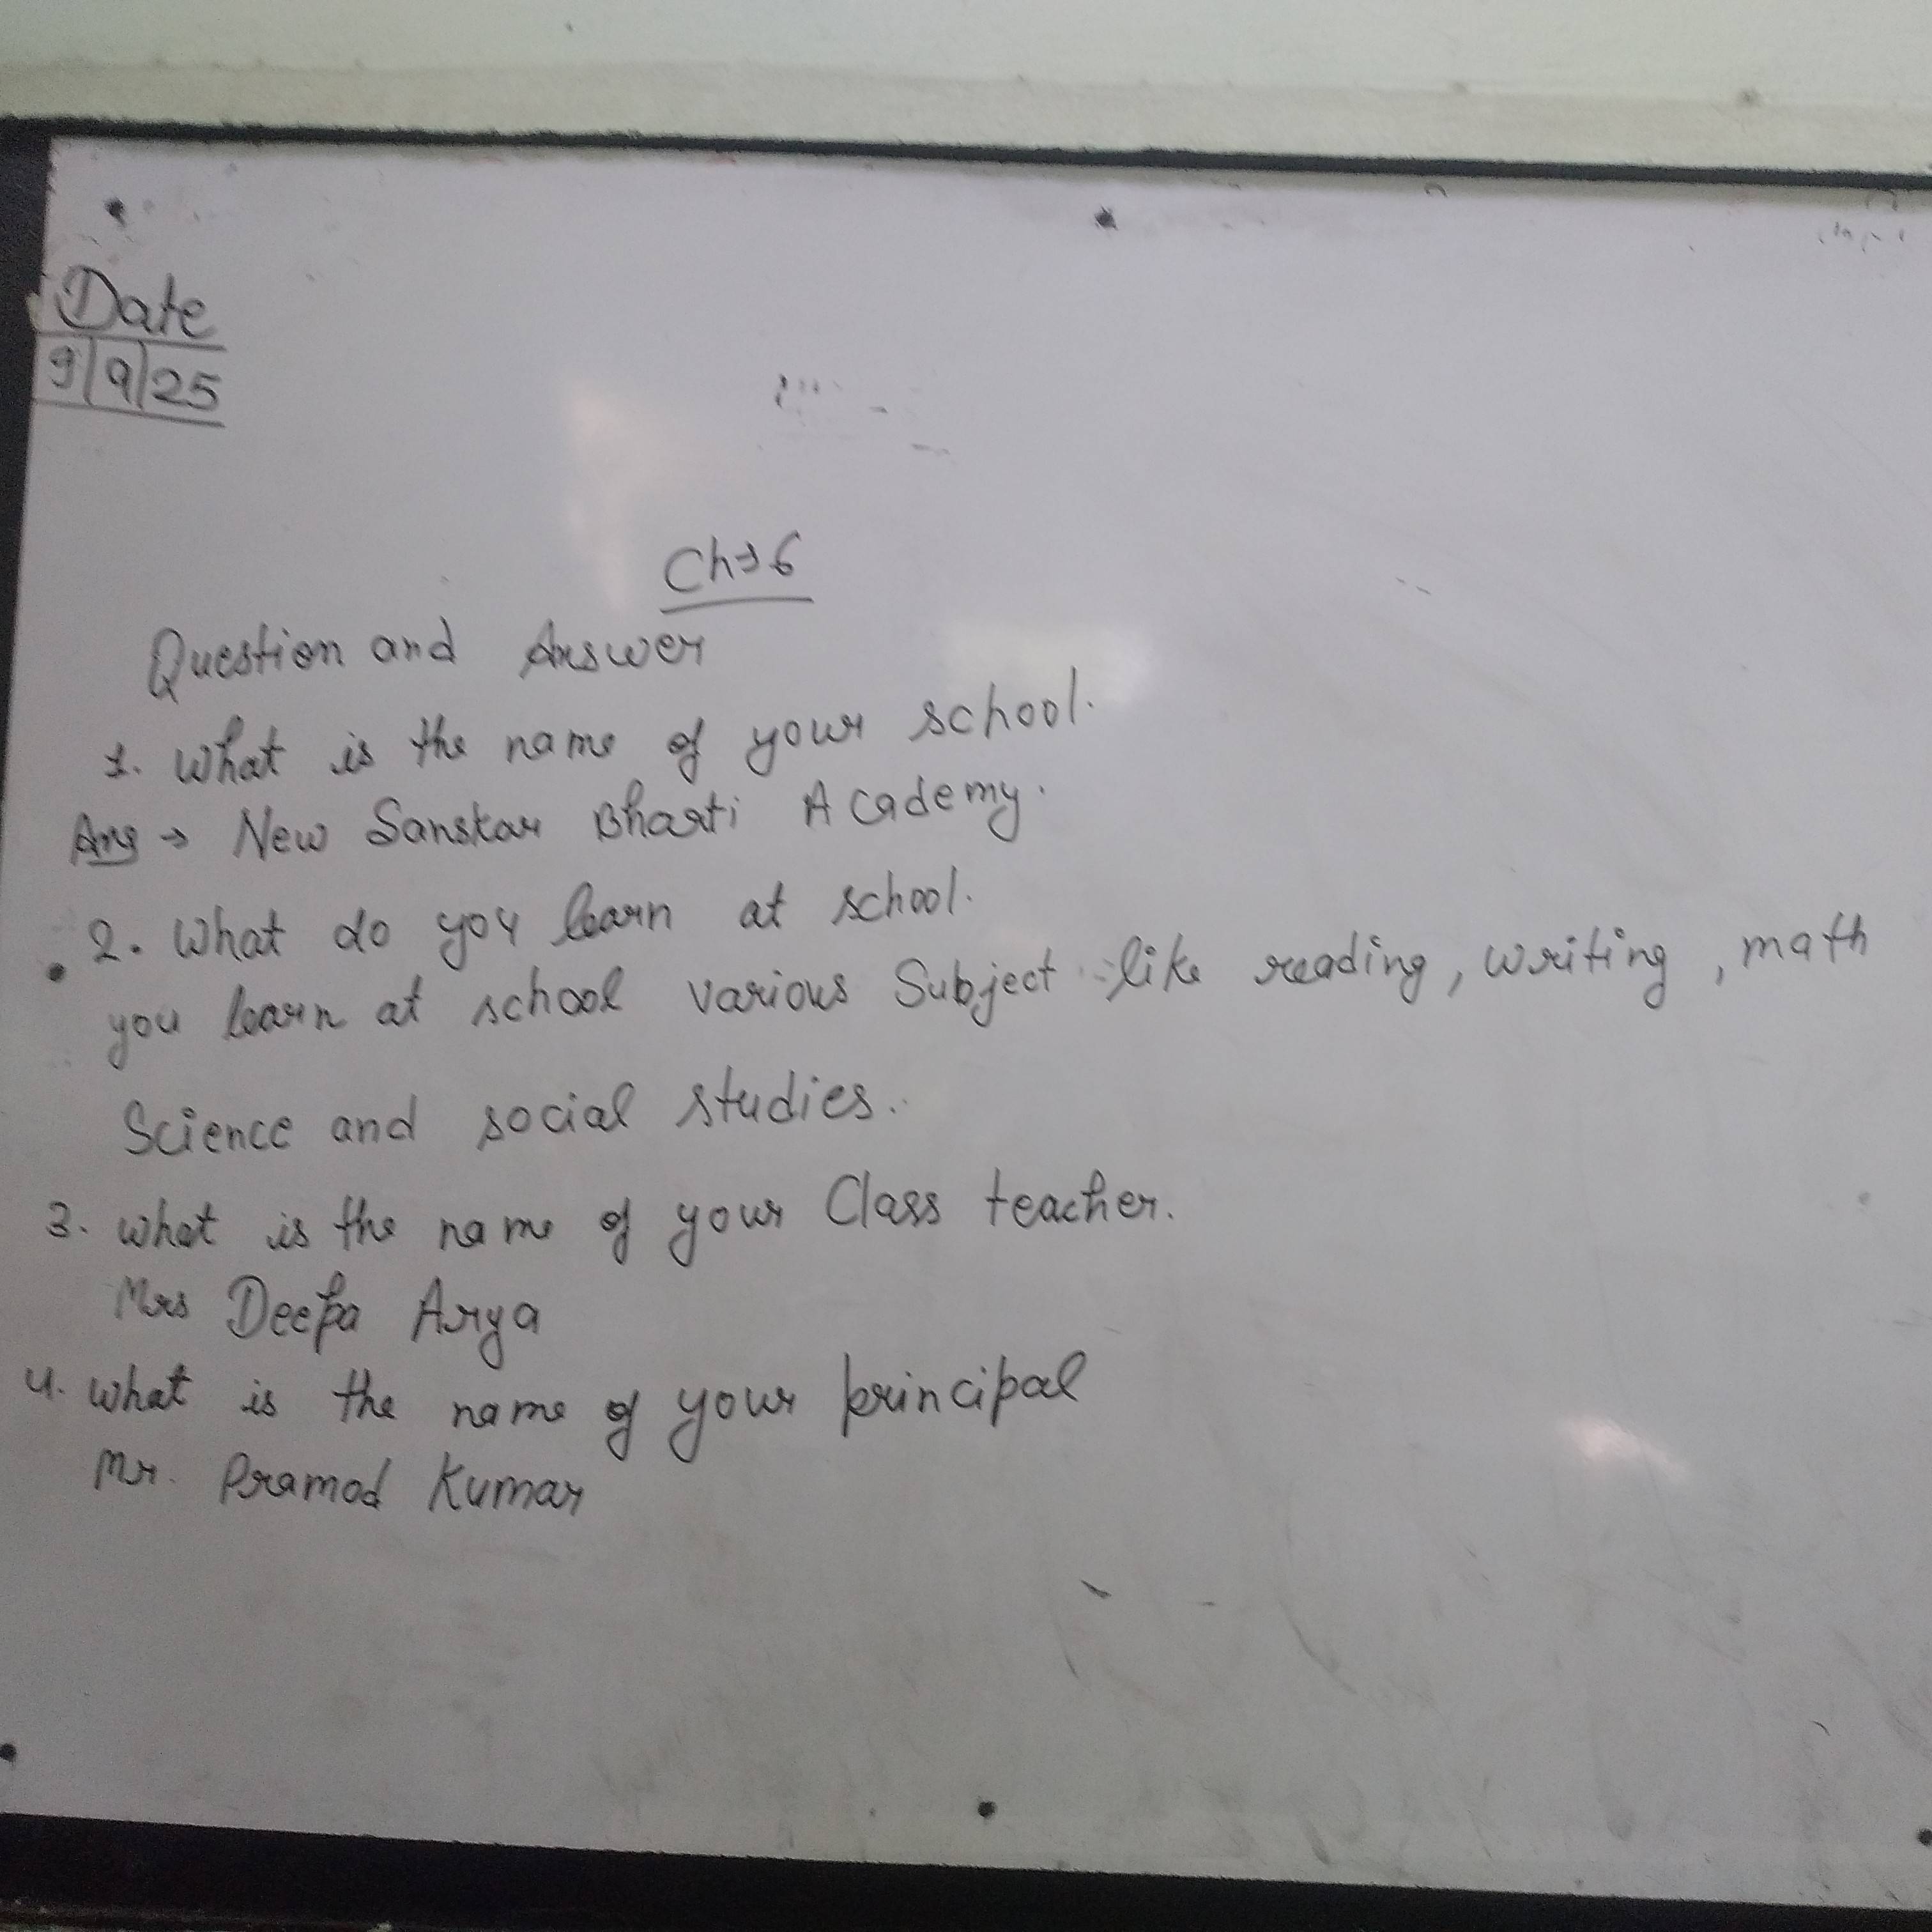 Date
9/9/25
Ch→6
Question and Answer
1. What is the name of your school.
Ans → New Sanskar Bharti Academy.
2. What do you learn at school.
you learn at school various Subject like reading, writing, math
Science and social studies.
3. what is the name of your Class teacher.
Mrs Deepa Arya
4. what is the name of your principal
Mr. Pramod Kumar